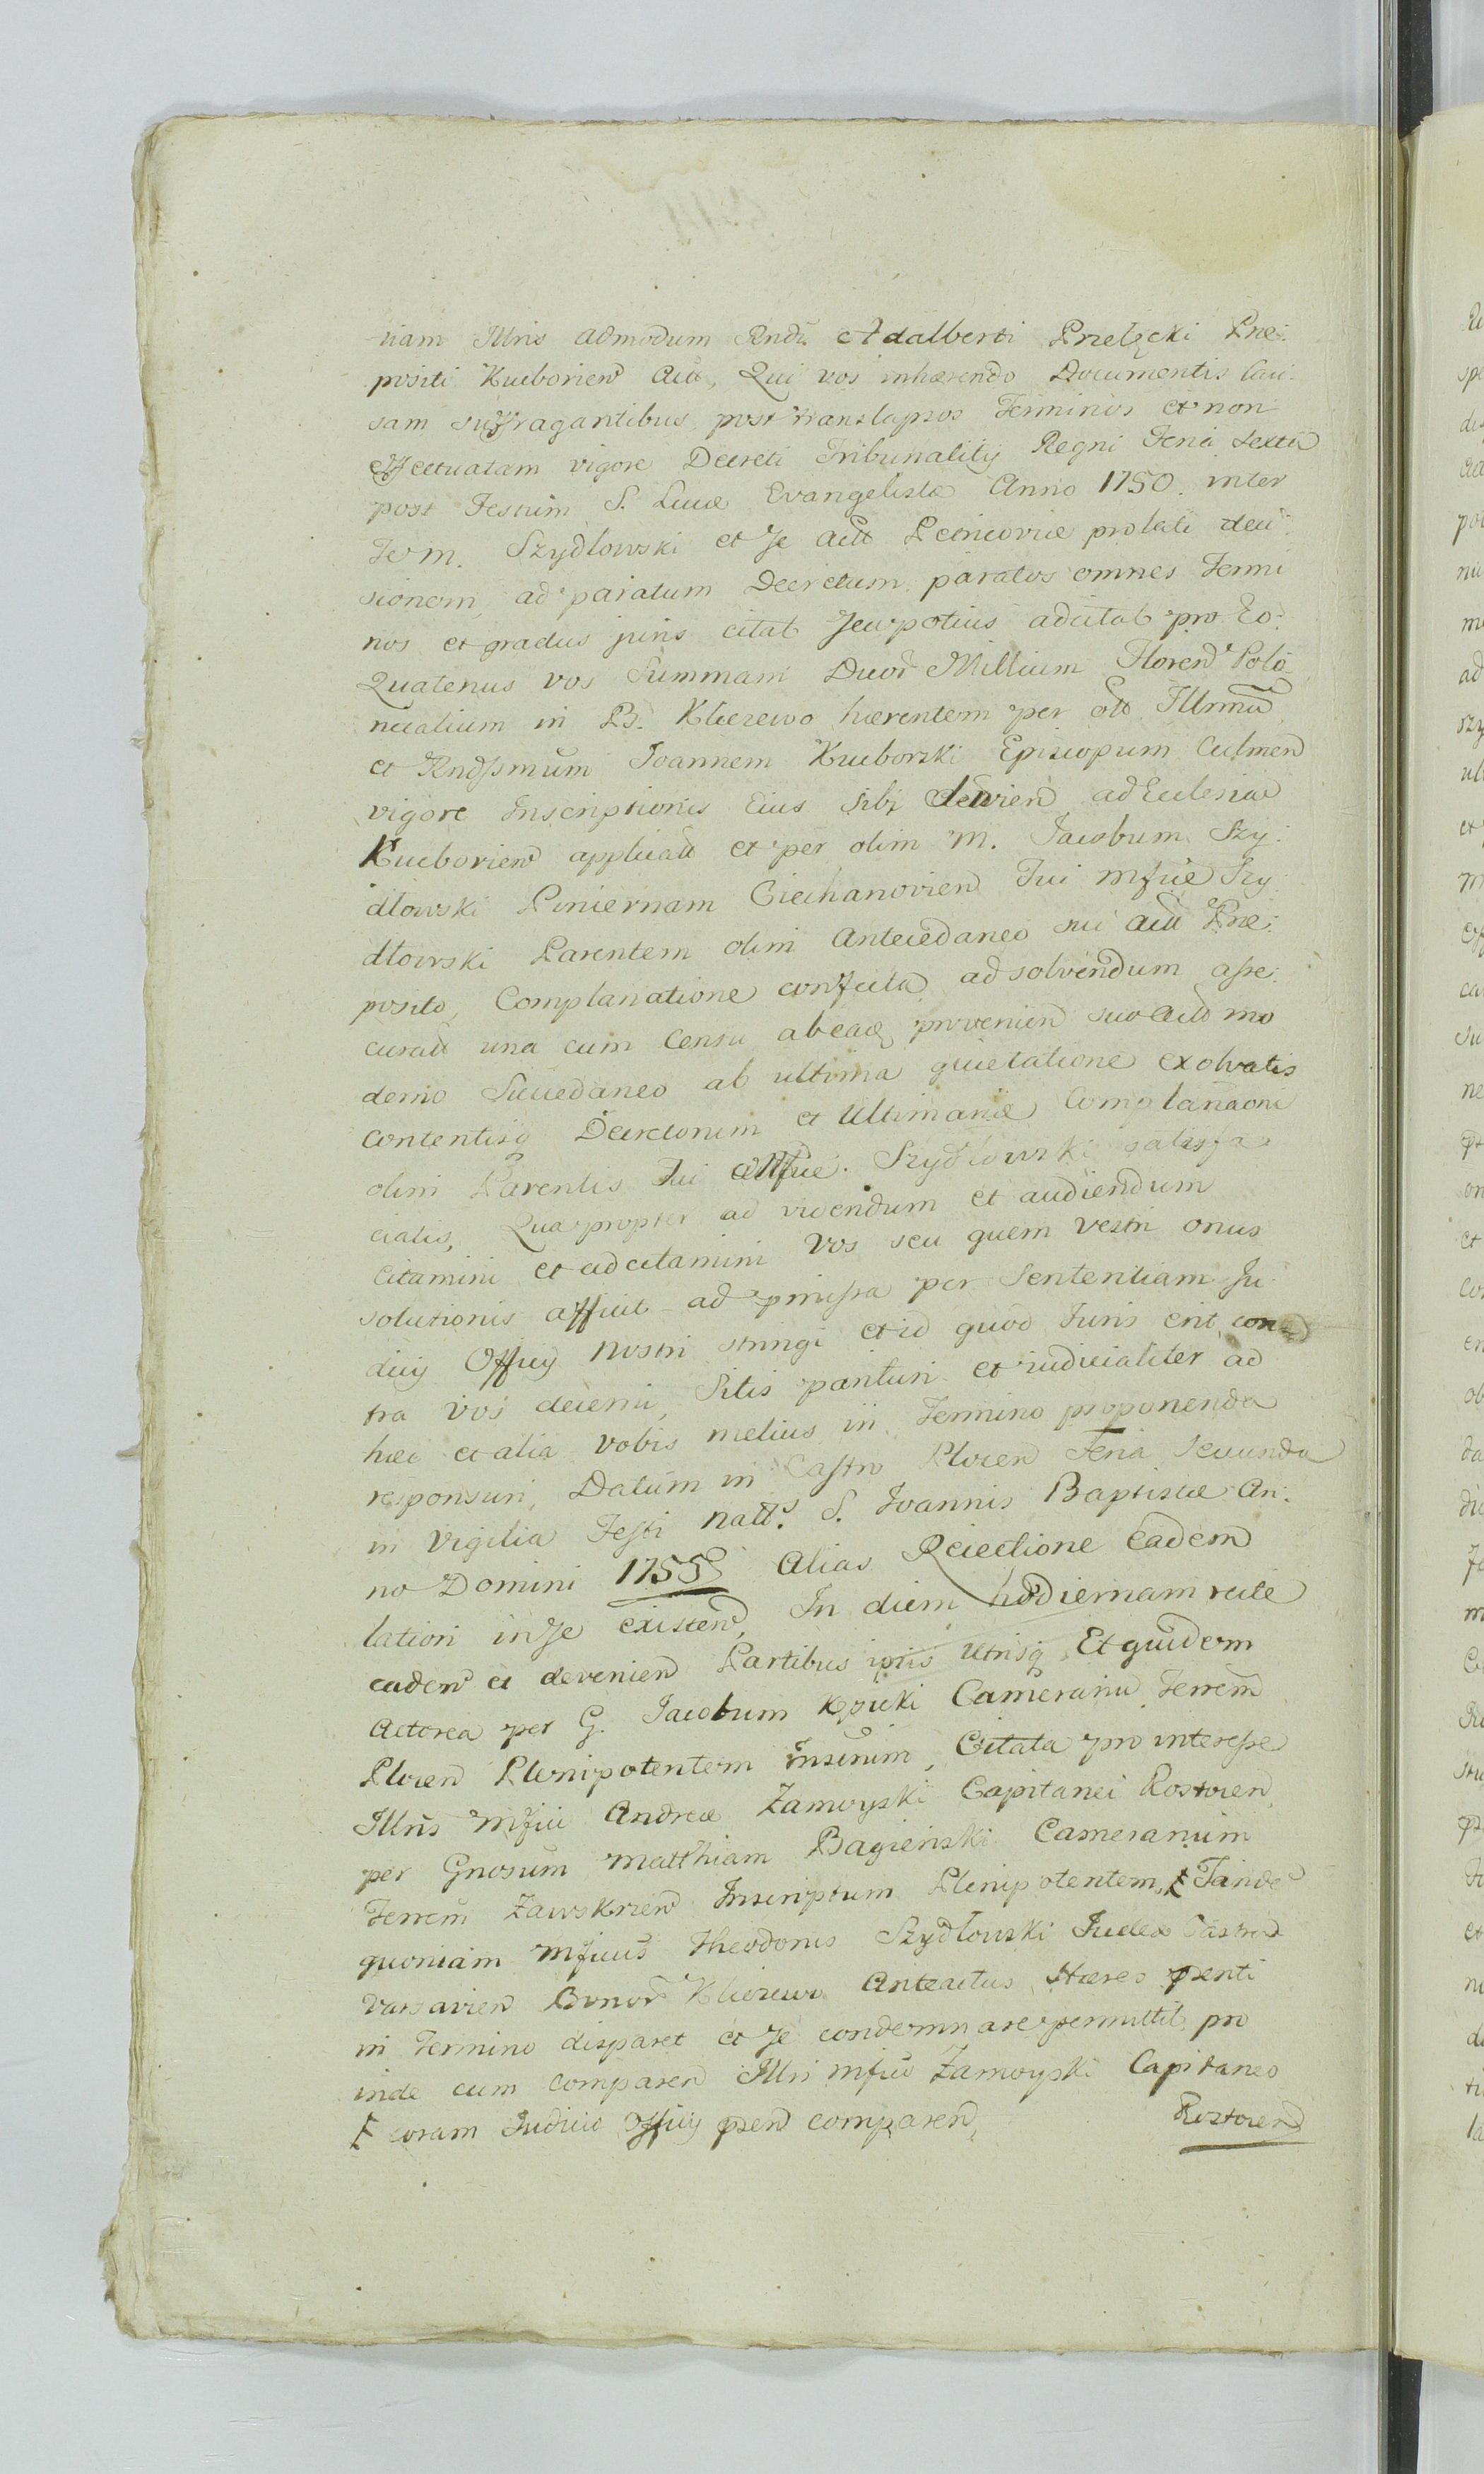 tiam Illris admodum Rndi Adalberti Przełęcki Præ:
positi Kucborien Act, Qui vos inhærendo Documentis Cau:
sam suffragantibus post translapsos Terminos et non
effectuatam vigore Decreti Tribunalitij Regni Feria Sexta
post Festum S. Lucæ Evangelistæ Anno 1750. inter
Te M. Szydłowski et Se Act Petricoviæ prolati deci:
sionem ad paratum Decretum paratos omnes Termi
nos et gradus juris citat seu potius adcitat pro Eo:
Quatenus vos Summam Duor Millium Floren Polo
nicalium in Bs. Kliczewo hærentem per olt Illrmu
et Rndssmum Joannem Kucborski Episcopum Culmen
vigore Inscriptionis Eius sibi ad Ecclesiæ
Kucborien applicatt et per olim M. Jacobum Szy:
dłowski Pincernam Ciechanovien Tui Mfice Szy:
dłowski Parentem olim Antecedaneo sui Act Præ:
posito, Complanatione confecta ad solvendum asse:
curatt una cum Censu ab eadq provenien suo Act mo
derno Succedaneo ab ultima quietatione exolvatis
Contentisq Decretorum et Ultimariæ Complanaoni
olim Parentis Tui Mfice. Szydłowski satisfa:
ciatis, Quapropter ad videndum et audiendum
Citamini et adcitamini Vos seu quem Vestri onus
solutionis afficit ad præmissa per Sententiam Ju:
dicij Officij Nostri stringi et id quod Juris erit con=
tra vos decerni, Sitis parituri et iudicialiter ad
hæc et alia vobis melius in Termino proponenda
responsuri, Datum in Castro Plocen Feria Secunda
in Vigilia Festi Natt.s S. Joannis Baptistæ An:
no Domini 1755 Alias Reiectione Eadem
lationi in Se existen, In diem hodiernam recte
caden et devenien Partibus ipsis utrisq Et quidem
Actorea per G. Jacobum Kęsicki Camerariu Terrem
Plocen Plenipotentem Insrium, Citata pro interesse
Illris Mfici Andreæ Zamoyski Capitanei Rostocen
per Gnosum Matthiam Bagieński Camerarium
Terrem Zawskrzen Inscriptum Plenipotentem, Ł Tande
quoniam Mficus Theodorus Szydłowski Judex Castren
Varsavien Bonor Kliczewo Anteactus Hæres pnti
in Termino disparet et Se condemnare permittit, pro
inde cum comparen Illri Mfico Zamoyski Capitaneo
Ł coram Judicio Officij psen comparen,
Rostocen